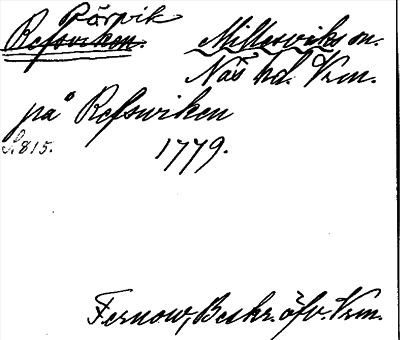 Pärvik
Refsviken. Millesviks sn.
Näs hd. Vrm.
på Refswiken
S. 815. 1779.
Fernow, Beskr. öfv. Vrm.